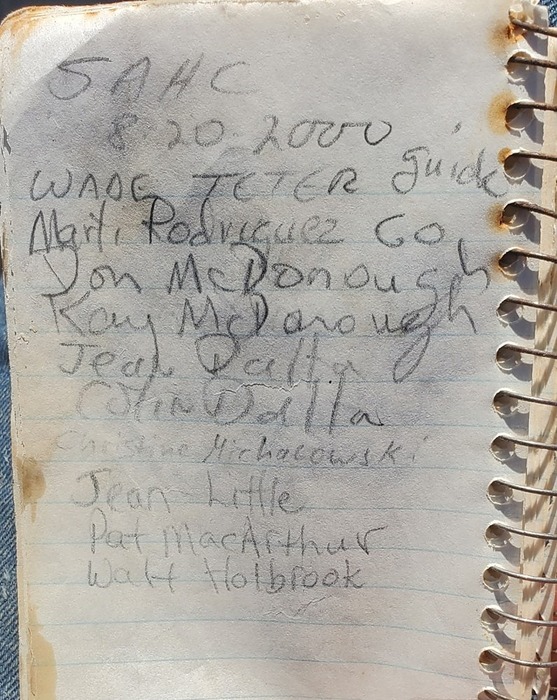 SAHC
8 20-2000
WADE TETER guide
Marti Rodriguez Co
Jon McDonough
Kay McDonough
Jean Dalla
Colin Dalla
Christine Michalowski
Jean Little
Pat MacArthur
Walt Holbrook